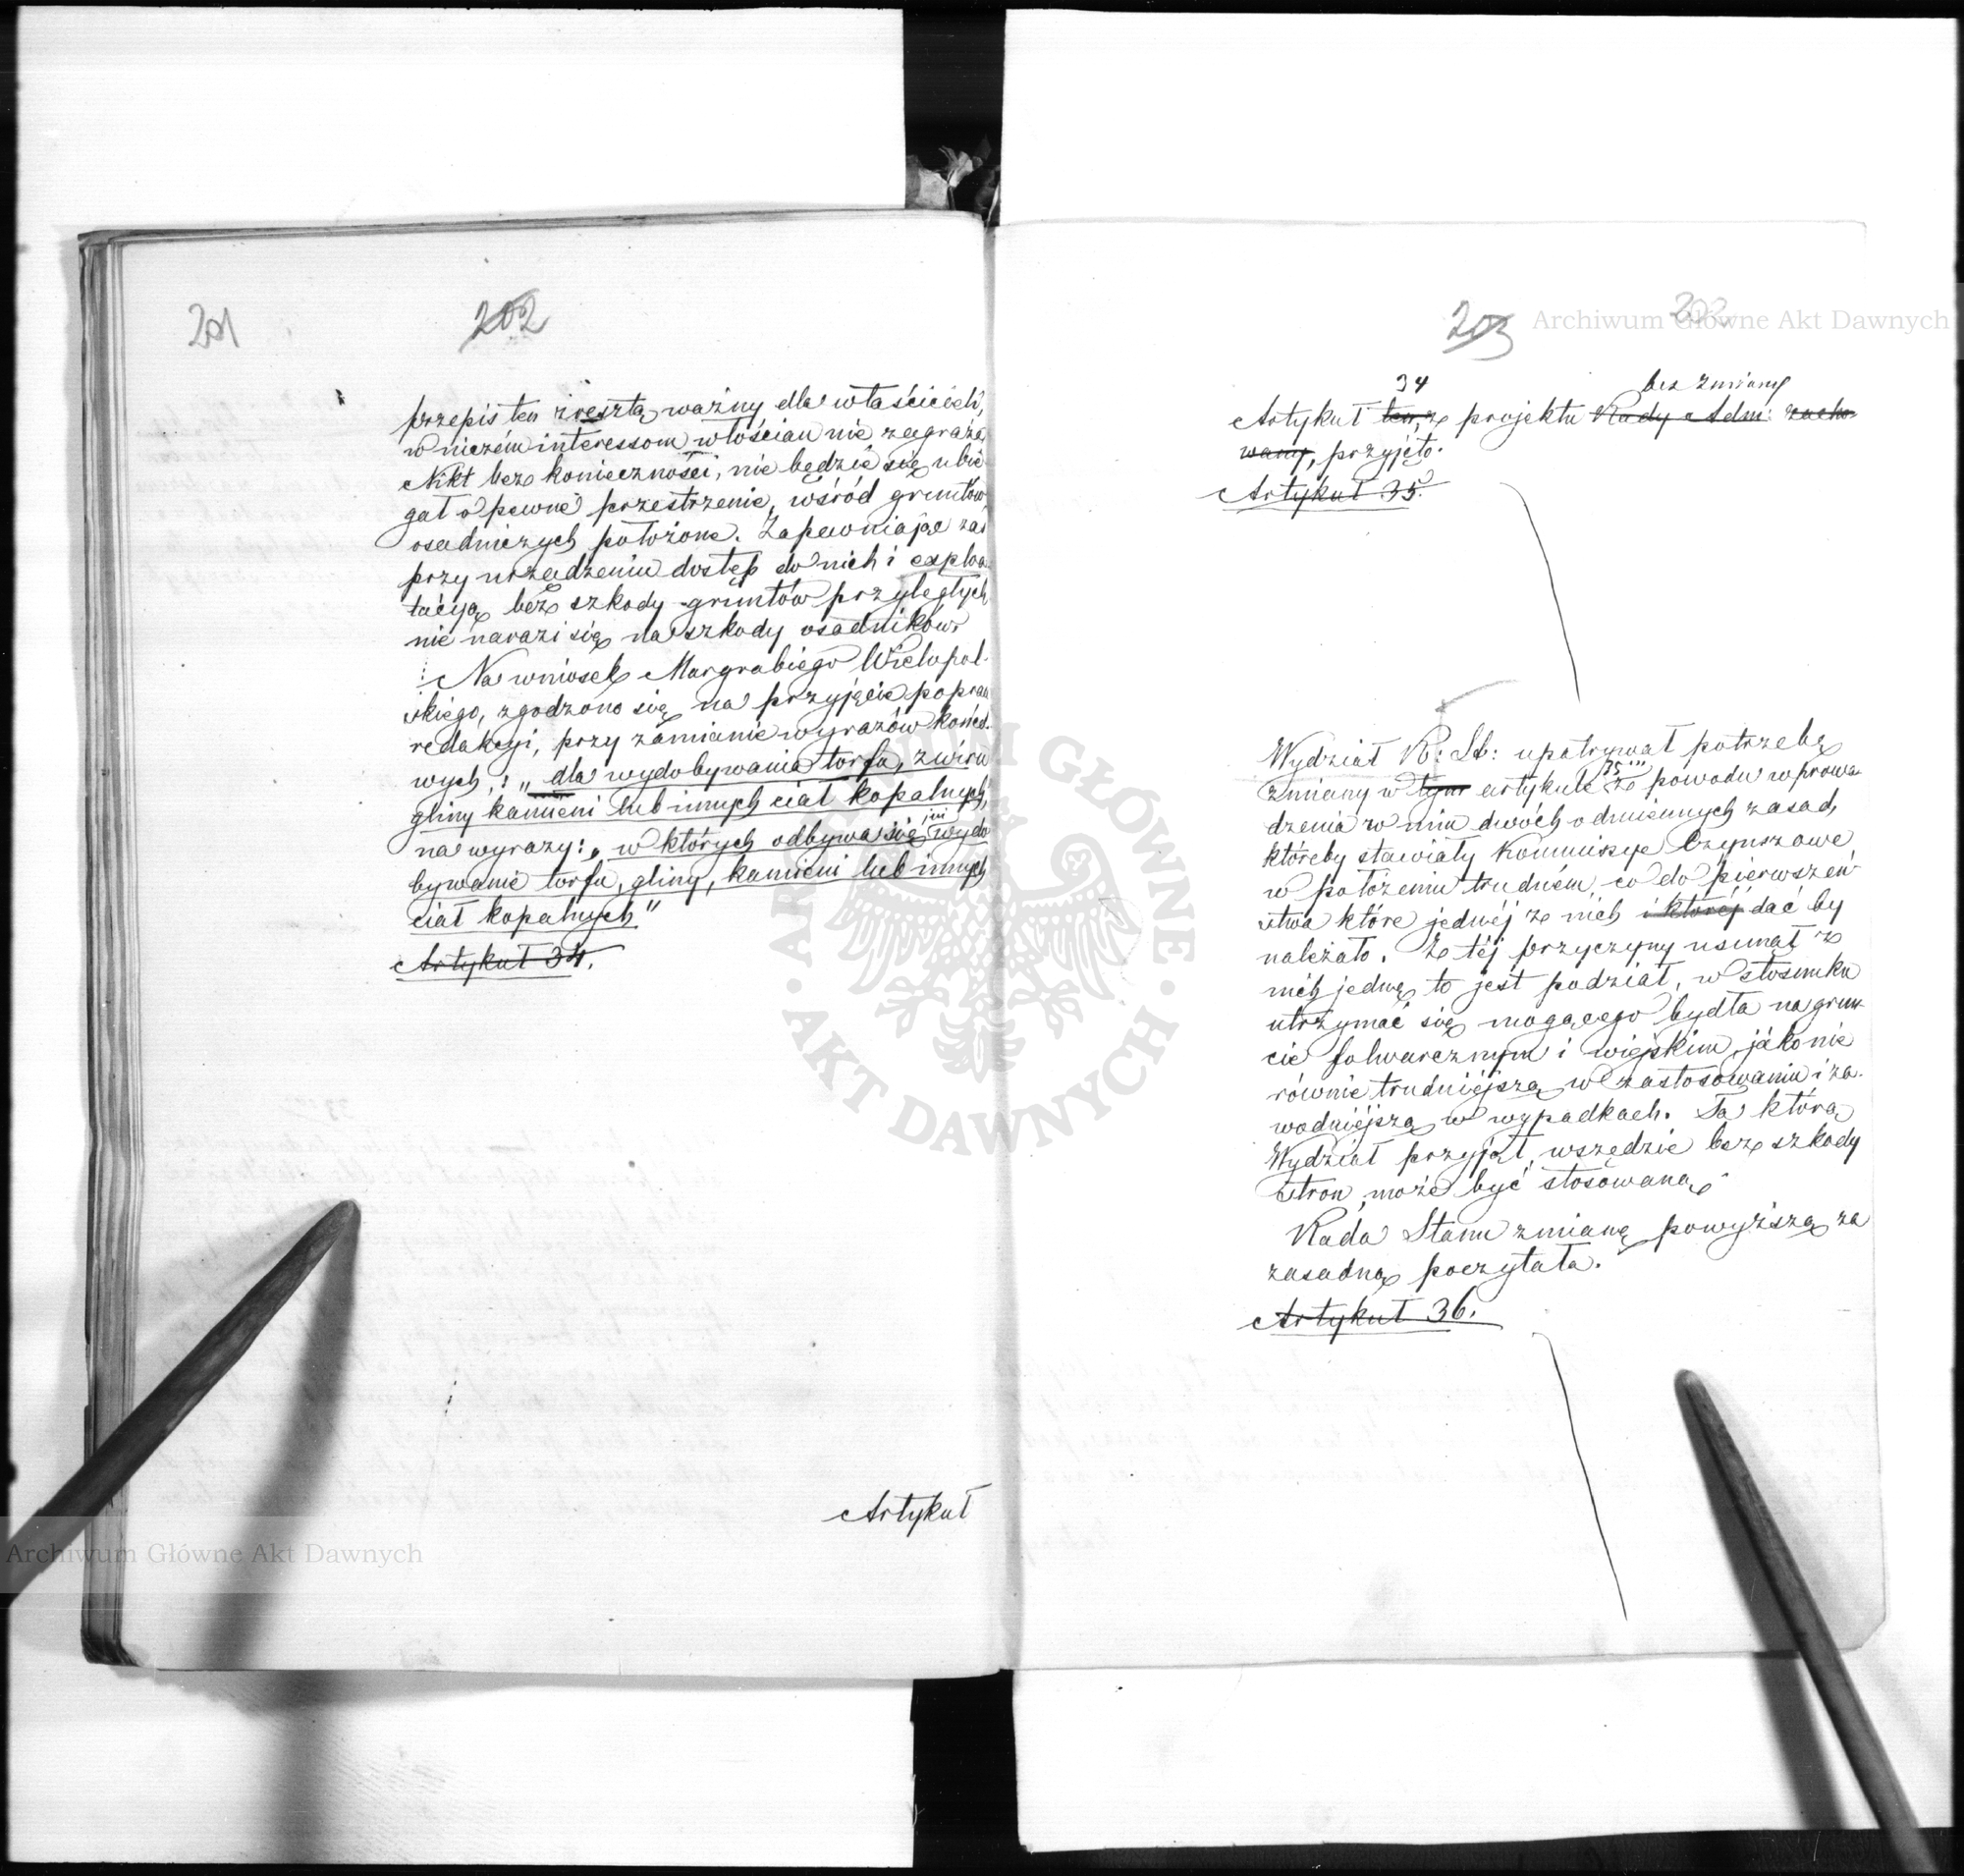 201
202
przepis ten zresztą ważny dla właścicieli,
w niczém interessom włościan nie zagraża,
Nikt bez konieczności, nie będzie się ubie
gał o pewne przestrzenie, wśród gruntów,
osadniczych położone. Zapewniając zaś
przy urządzeniu dostęp do nich i exploa
tacyą bez szkody gruntów przyległych
nie narazi się na szkody osadników.
Na wniosek Margrabiego Wielopol-
skiego, zgodzono się na przyjęcie popraw
redakcyi, przy zamianie wyrazów końco-
wych,: „dla wydobywania torfu, żwiru
gliny kamieni lub innych ciał kopalnych,
na wyrazy: „w których odbywa się wydo
bywanie torfu, gliny, kamieni lub innych
ciał kopalnych"
Artykuł 34.
Artykuł
203
202
34 bez zmiany
Artykuł ten, z projektu Rady Adm: zacho-
wany, przyjęto.
Artykuł 35.
Wydział R: St: upatrywał potrzebę
zmiany w tym artykule 35 z powodu wprowa
dzenia w nim dwóch odmiennych zasad,
któreby stawiały Kommissye Czynszowe
w położeniu trudném, co do pierwszeń-
stwa które jednéj z nich i któréj dać by
należało. Z téj przyczyny usunął z
nich jedną to jest podział, w stosunku
utrzymać się mogącego bydła na grun-
cie folwarcznym i wiejskim, jako nie
równie trudniejszą w zastosowaniu i za-
wodniejszą w wypadkach. Ta którą
Wydział przyjął, wszędzie bez szkody
stron, może być stosowaną.
Rada Stanu zmianę powyższą za
zasadną poczytała.
Artykuł 36.
Archiwum Główne Akt Dawnych
Archiwum Główne Akt Dawnych
ARCHIWUM GŁÓWNE · AKT DAWNYCH ·